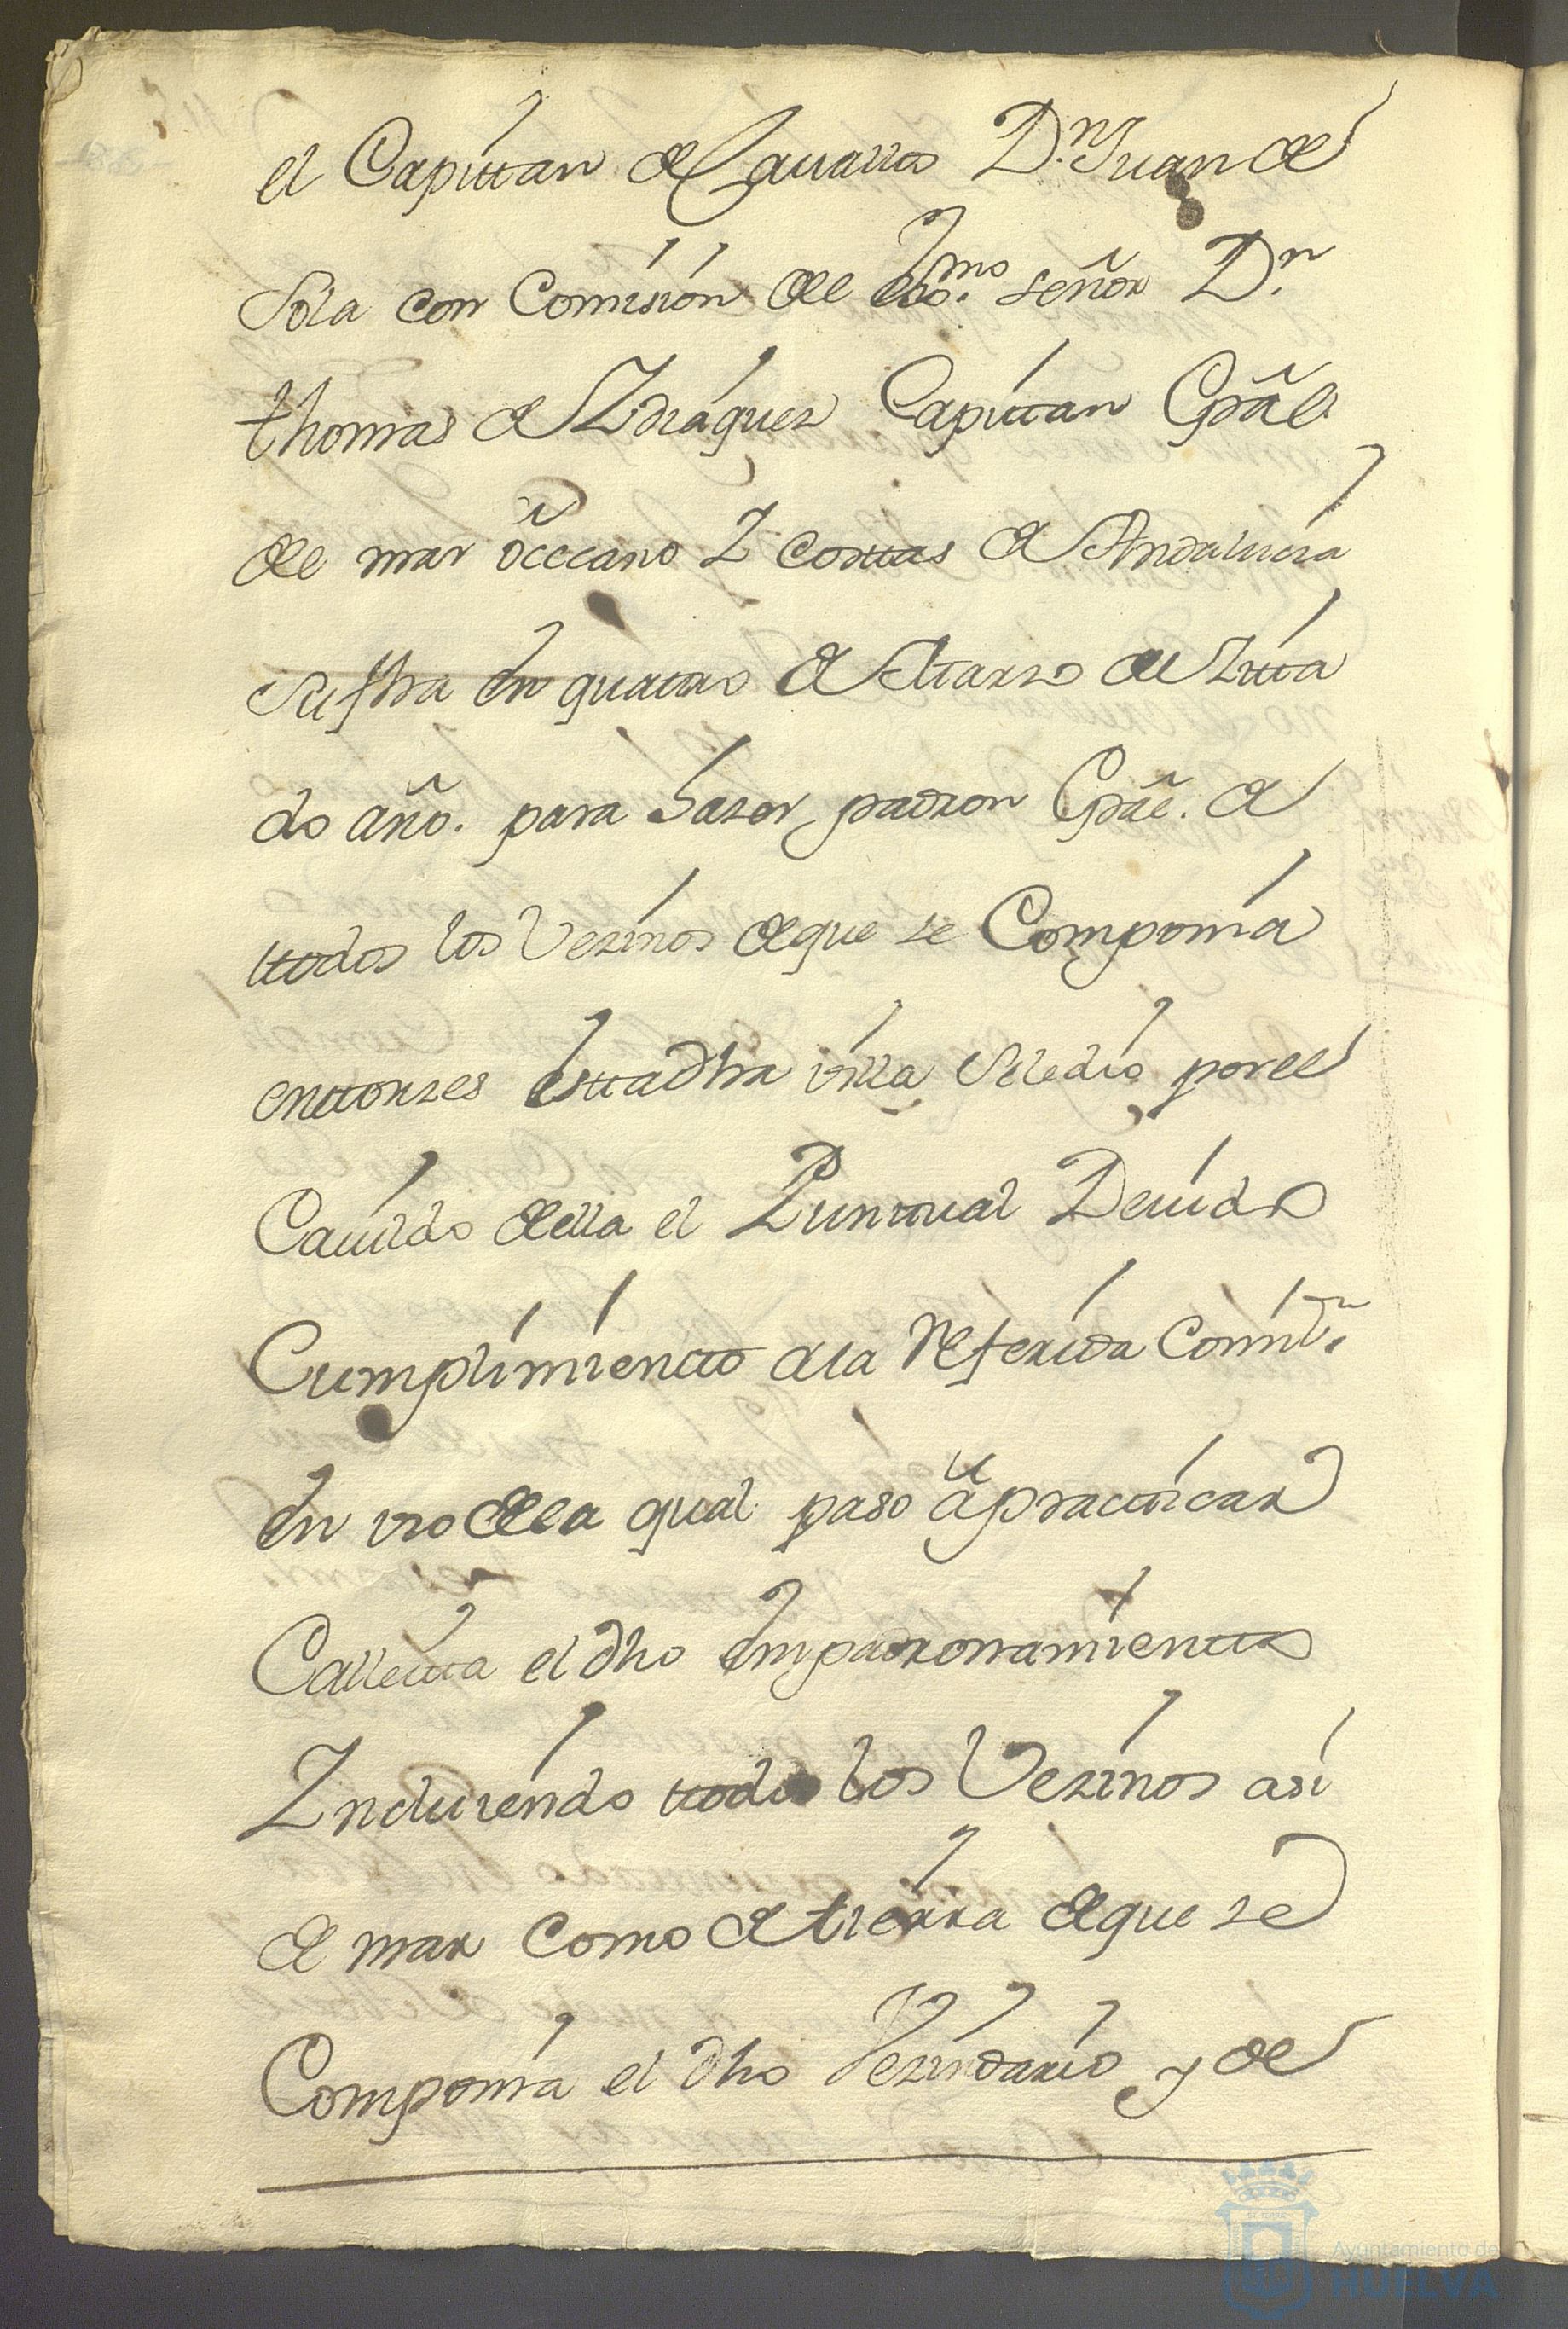 el Capittan de Cavallos D.n Juan de
Sola con Comision del Exmo. señor D.n
thomas de Ydiaquez Capittan Grãl
del mar oceeano Y costtas de Andalucia
su fha en quattro de Marzo del zitta
do año. para hazer padron Grãl. de
ttodos los Vezinos de que se Componia
enttonzes estta dha villa Se le dio por el
Cavildo della el Punttual Devido
Cumplimientto a la referida Comis.n
en vso de la qual paso a practticar
Callehitta el dho Empadronamientto
Yncluiendo ttodos los Vezinos asi
de mar como de tierra de que se
Componia el dho Vezindario, y de
Ayuntamiento de
HUELVA